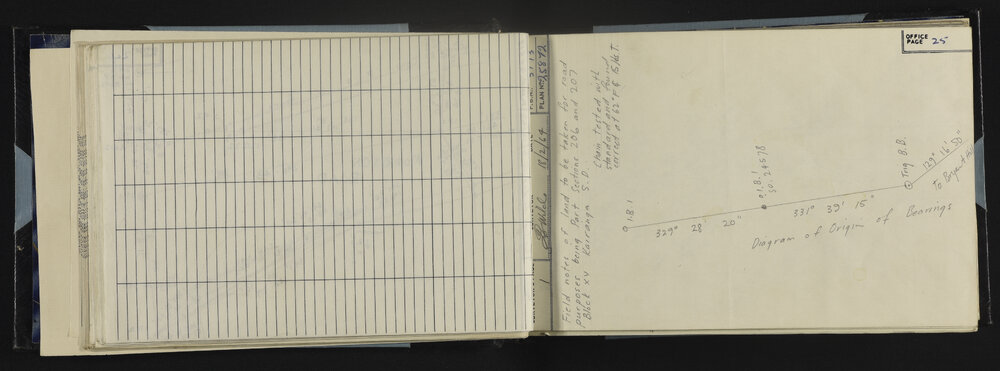 OFFICE
PAGE 25
PLAN No. 25872
18/2/64
1
Field notes of land to be taken for road
purposes being Part Sections 206 and 207
Block XV Kairanga S.D.
Chain tested with
standard and found
correct at 62°F & 15 lb T.
O I.B.1
329° 28' 20"
O.I.B.1
S.O. 24578
331° 39' 15"
Trig B.D.
129° 16' 50"
To Bryant Hill
Diagram of Origin of Bearings